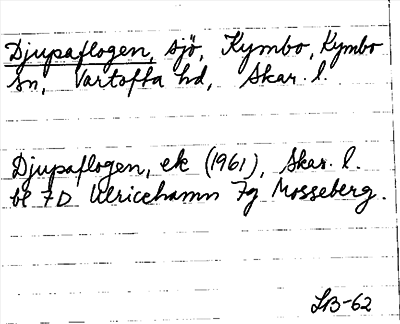 Djupaflogen, sjö, Kymbo, Kymbo
sn, Vartofta hd, Skar. l.
Djupaflogen, ek (1961), Skar. l.
bl 7D Ulricehamn 7g Mosseberg.
SB-62